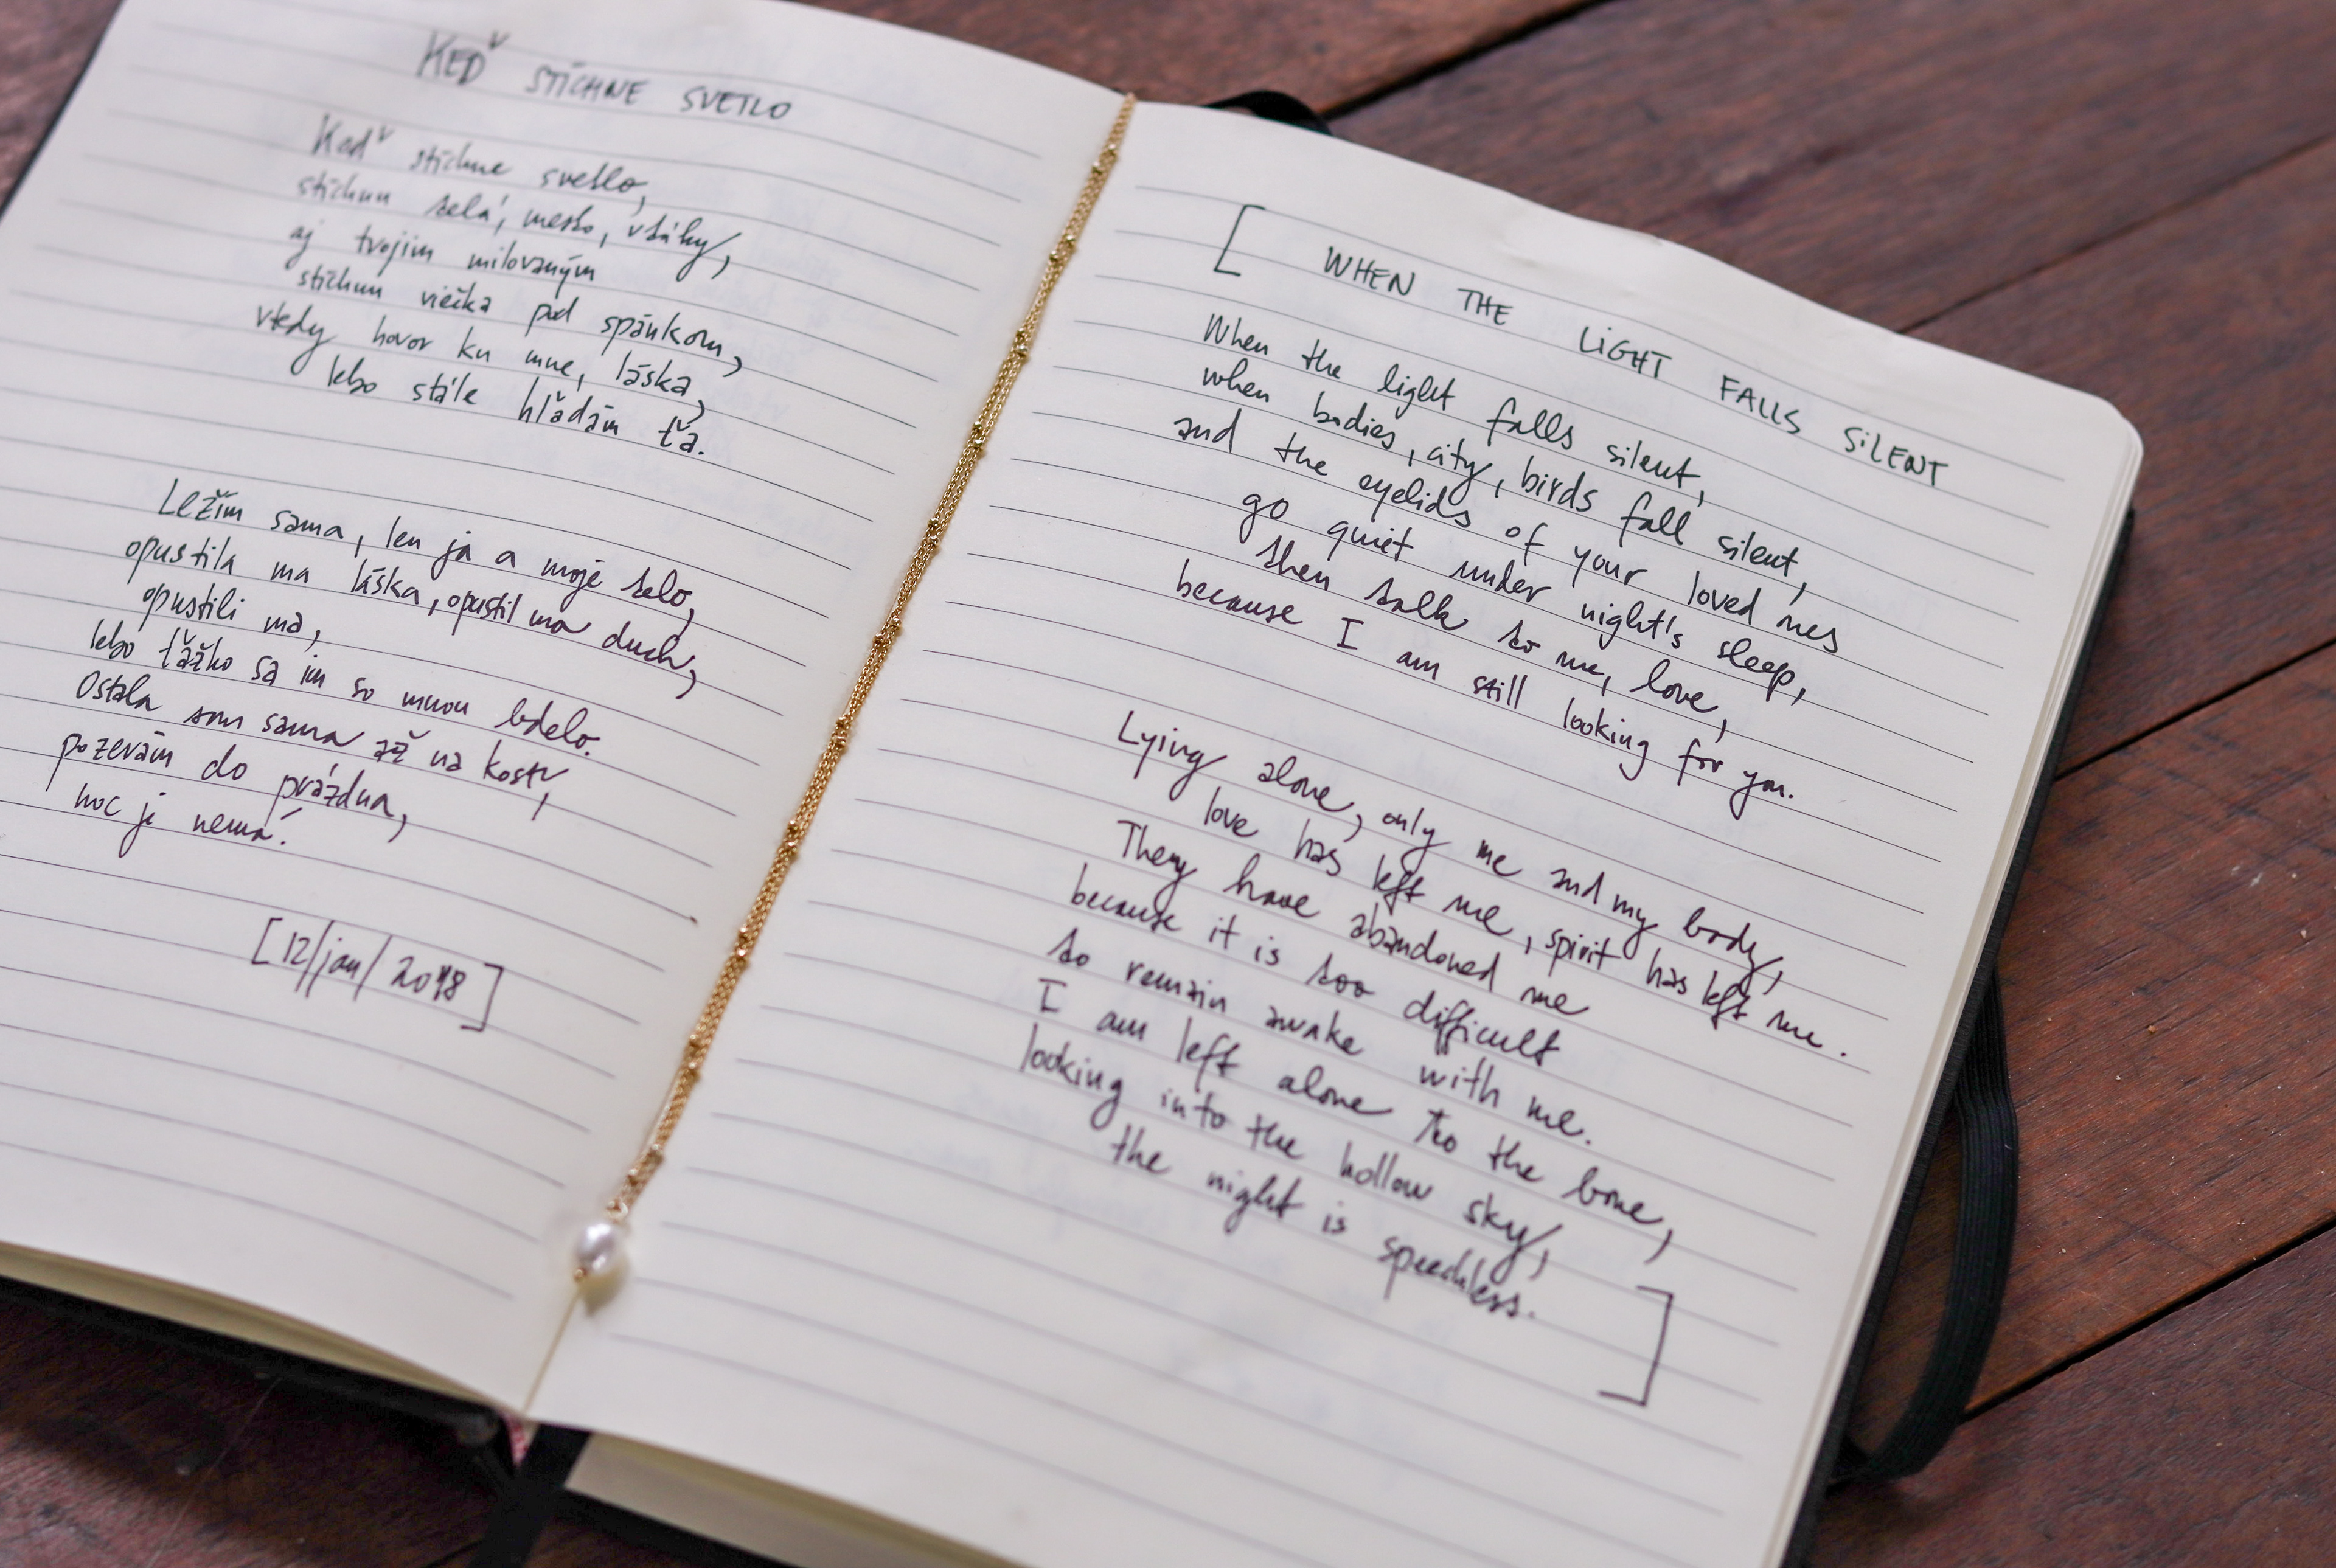 KEĎ STÍCHNE SVETLO
Keď stíchne svetlo,
stíchnu telá, mesto, vtáky,
aj tvojim milovaným
stíchnu viečka pod spánkom,
vtedy hovor ku mne, láska,
lebo stále hľadám ťa.
Ležím sama, len ja a moje telo,
opustila ma láska, opustil ma duch,
opustili ma,
lebo ťažko sa im so mnou bdelo.
Ostala som sama až na kosť,
pozerám do prázdna,
noc je nemá.
[12/jan/2018]
[ WHEN THE LIGHT FALLS SILENT
When the light falls silent,
when bodies, city, birds fall silent,
and the eyelids of your loved ones
go quiet under night's sleep,
then talk to me, love,
because I am still looking for you.
Lying alone, only me and my body,
love has left me, spirit has left me.
They have abandoned me
because it is too difficult
to remain awake with me.
I am left alone to the bone,
looking into the hollow sky,
the night is speechless.
]